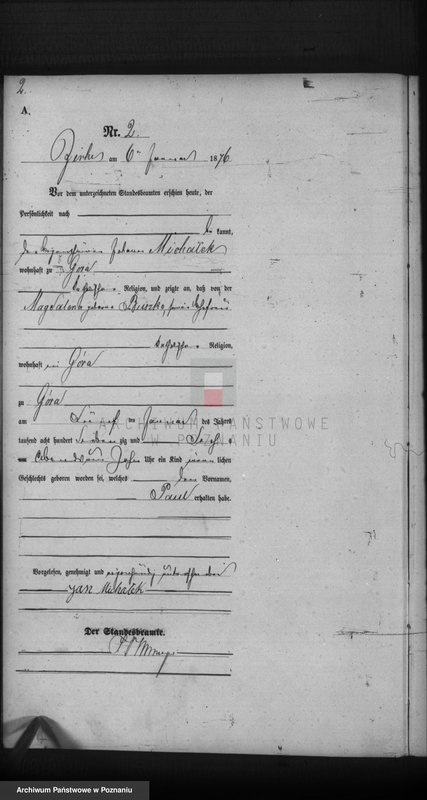 2.
A.
Nr. 2.
am 6ten Januar 1876.
Vor dem unterzeichneten Standesbeamten erschien heute, der
Persönlichkeit nach
be kannt,
der Johann Michałek
wohnhaft zu Góra
katholischer Religion, und zeigte an, daß von der
Magdalena geborne seiner Ehefrau
katholischer Religion,
wohnhaft in Góra
zu Góra
am fünften Januar des Jahres
tausend acht hundert sieben zig und sechs
Abends um Uhr ein Kind männ lichen
Geschlechts geboren worden sei, welches den Vornamen,
Paul erhalten habe.
Vorgelesen, genehmigt und eigenhändig unterschrieben
Jan Michałek
Der Standesbeamte.
ARCHIWUM PAŃSTWOWE
W POZNANIU
Archiwum Państwowe w Poznaniu